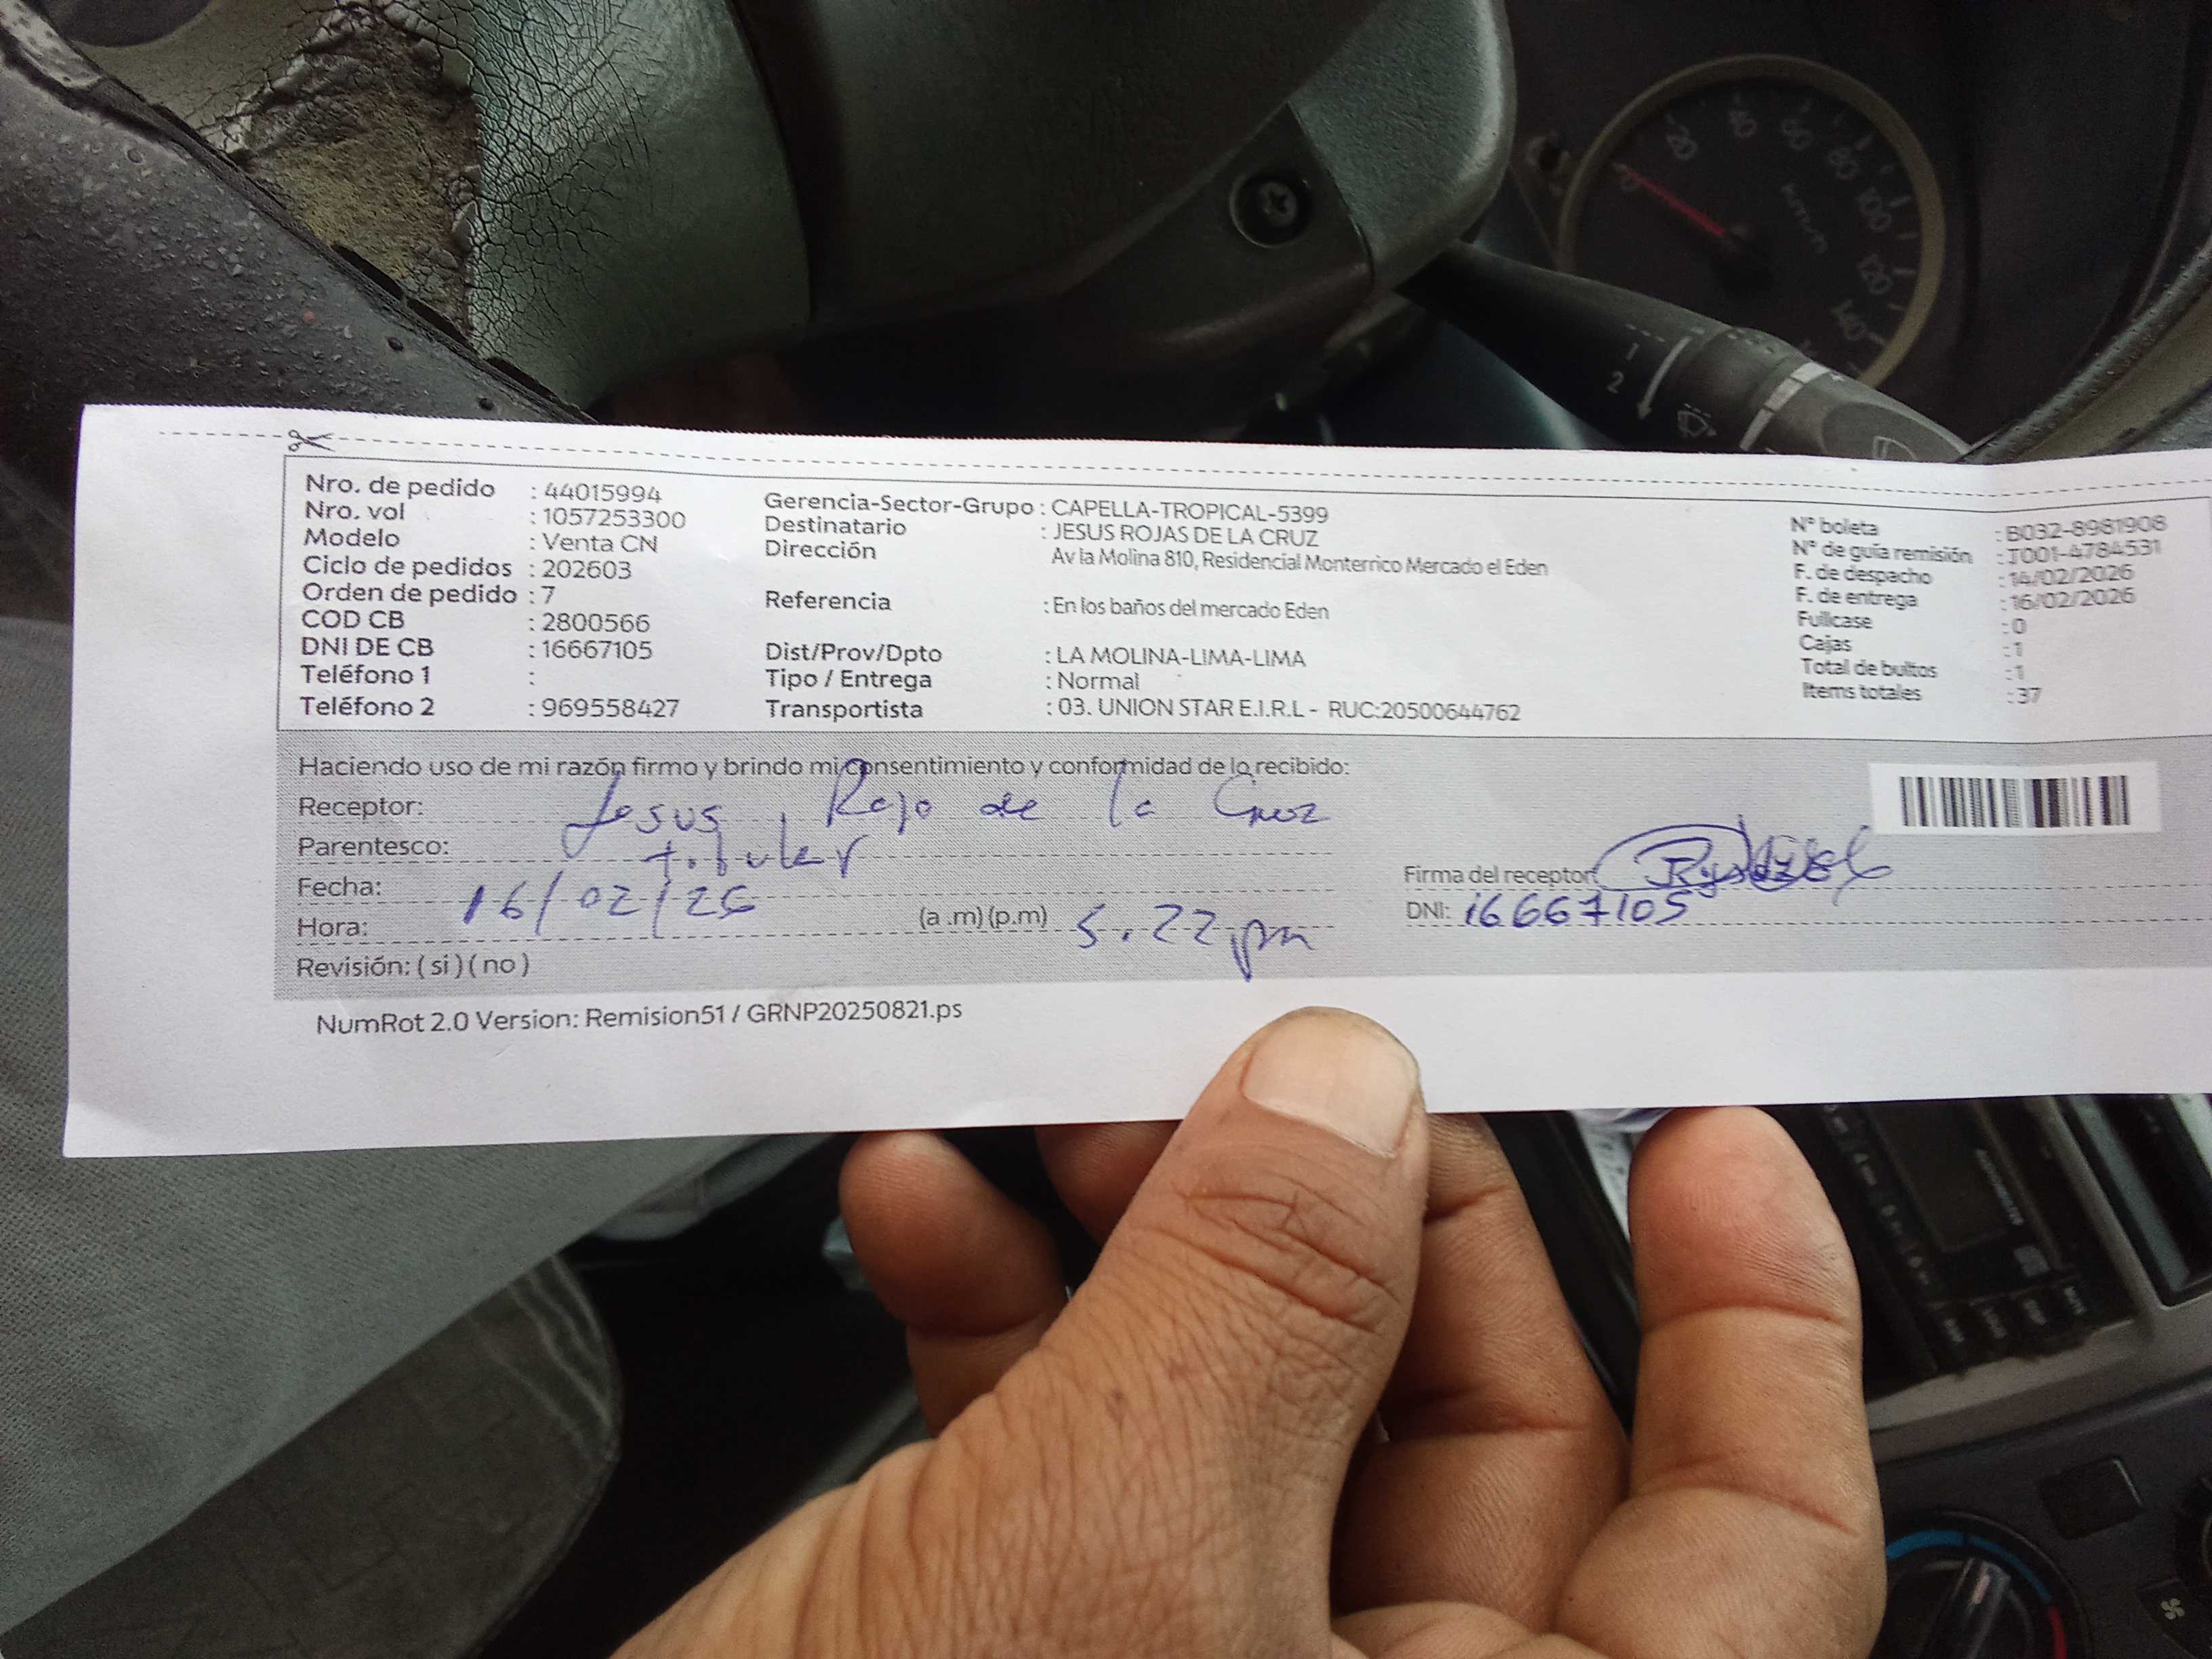 Nro. de pedido : 44015994
Nro. vol : 1057253300
Modelo : Venta CN
Ciclo de pedidos : 202603
Orden de pedido : 7
COD CB : 2800566
DNI DE CB : 16667105
Teléfono 1 :
Teléfono 2 : 969558427
Gerencia-Sector-Grupo : CAPELLA-TROPICAL-5399
Destinatario : JESUS ROJAS DE LA CRUZ
Dirección Av la Molina 810, Residencial Monterrico Mercado el Eden
Referencia : En los baños del mercado Eden
Dist/Prov/Dpto : LA MOLINA-LIMA-LIMA
Tipo / Entrega : Normal
Transportista : 03. UNION STAR E.I.R.L - RUC:20500644762
N° boleta : B032-8981908
N° de guía remisión : T001-4784531
F. de despacho : 14/02/2026
F. de entrega : 16/02/2026
Fullcase : 0
Cajas : 1
Total de bultos : 1
Items totales : 37
Haciendo uso de mi razón firmo y brindo mi consentimiento y conformidad de lo recibido:
Receptor: Jesus Rojo de la Cruz
Parentesco: titular
Fecha: 16/02/26
Hora: (a .m) (p.m) 5.22 pm
Revisión: ( si ) ( no )
Firma del receptor
DNI: 16667105
NumRot 2.0 Version: Remision51 / GRNP20250821.ps
0 20 40 60 80 100 120 140
km/h
1
2